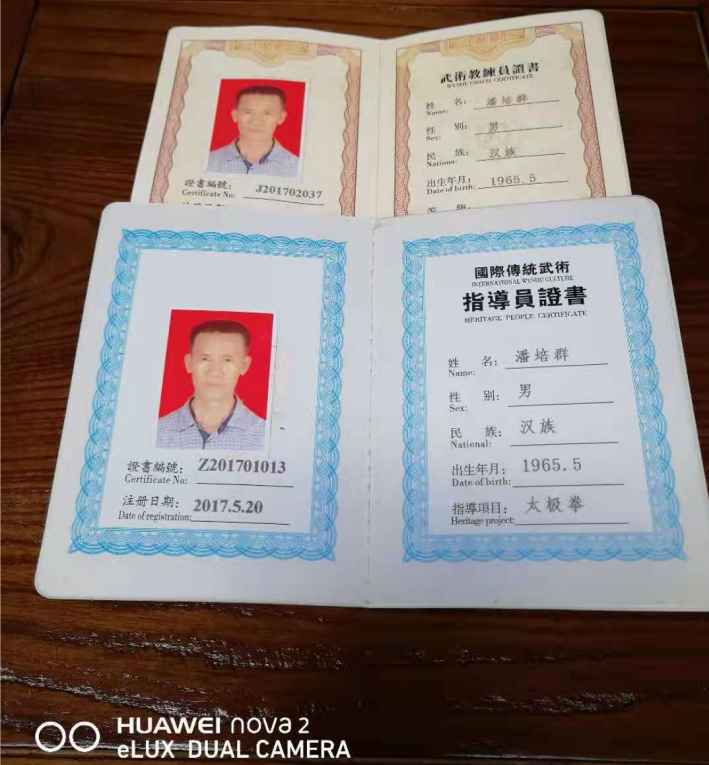 武術教練員證書
WUSHU COACH CERTIFICATE
姓 名: 潘培群
Name:
性 别: 男
Sex:
民 族: 汉族
Nationa:
出生年月: 1965.5
Date of birth:
證書編號: J201702037
Certificate No:
國際傳統武術
INTERNATIONAL WUSHU CULTURE
指導員證書
HERITAGE PEOPLE CERTIFICATE
姓 名: 潘培群
Name:
性 别: 男
Sex:
民 族: 汉族
National:
出生年月: 1965.5
Date of birth:
指導項目: 太极拳
Heritage project:
證書編號: Z201701013
Certificate No:
注册日期: 2017.5.20
Date of registration:
HUAWEI nova 2
eLUX DUAL CAMERA